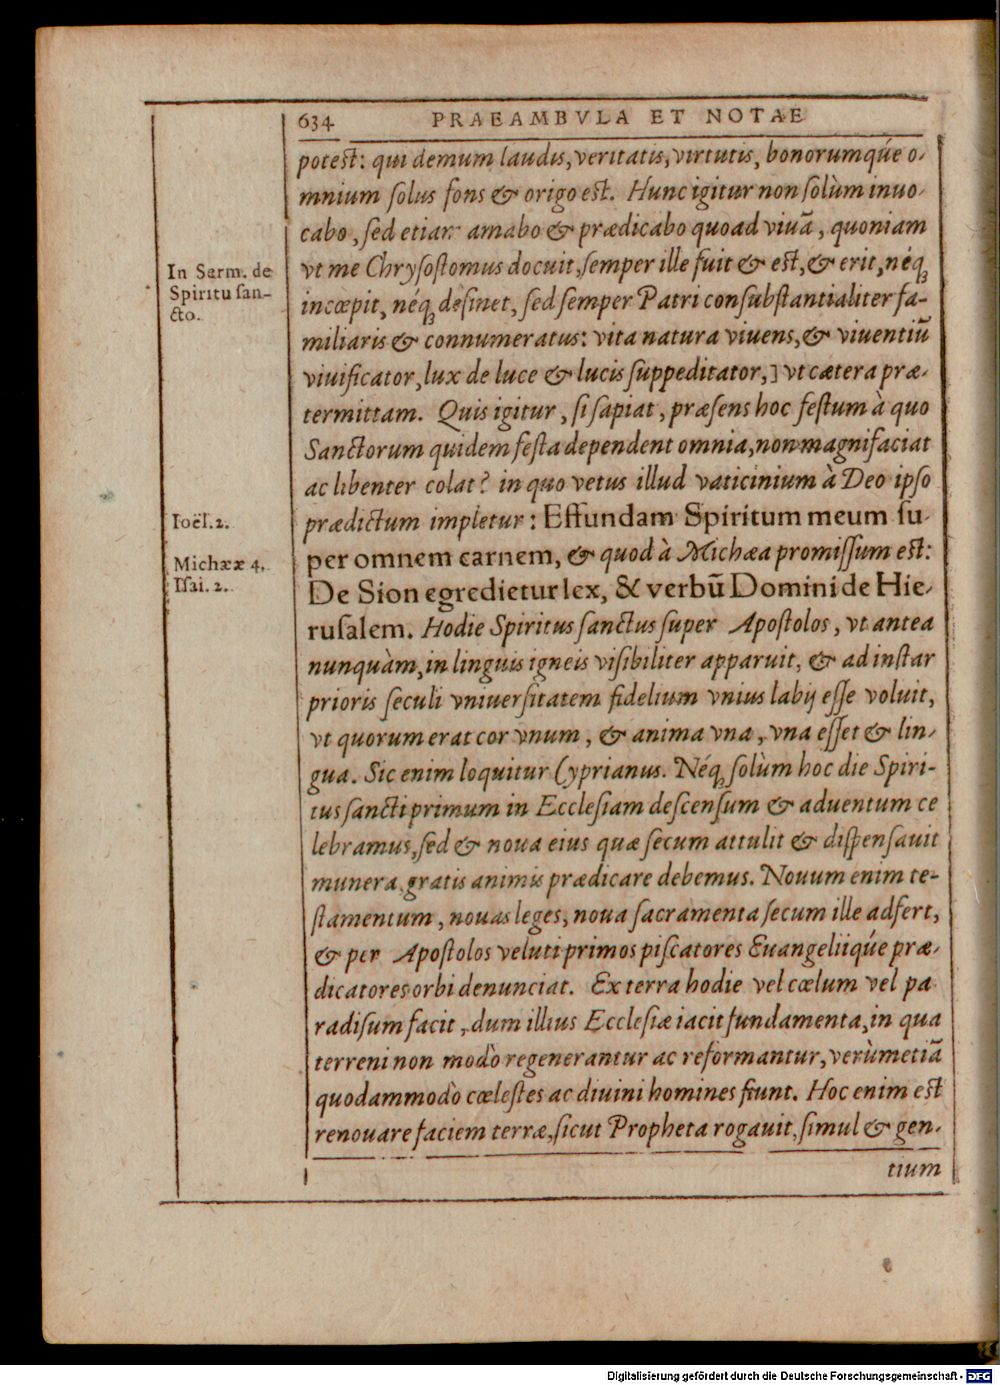 634 PRAEAMBVLA ET NOTAE
potest: qui demum laudis, veritatis, virtutis, bonorumq́ue o-
mnium solus fons & origo est. Hunc igitur non solùm inuo-
cabo, sed etiam amabo & prædicabo quoad viuā, quoniam
In Serm. de
Spiritu san-
cto.
vt me Chrysostomus docuit, semper ille fuit & est, & erit, néq;
incœpit, néq; desinet, sed semper Patri consubstantialiter fa-
miliaris & connumeratus: vita natura viuens, & viuentiū
viuificator, lux de luce & lucis suppeditator,] vt cætera præ-
termittam. Quis igitur, si sapiat, præsens hoc festum à quo
Sanctorum quidem festa dependent omnia, non magnifaciat
ac libenter colat? in quo vetus illud vaticinium à Deo ipso
Ioël. 2.
prædictum impletur: Effundam Spiritum meum su-
Michææ 4.
Isai. 2.
per omnem carnem, & quod à Michæa promissum est:
De Sion egredietur lex, & verbū Domini de Hie-
rusalem. Hodie Spiritus sanctus super Apostolos, vt antea
nunquàm, in linguis igneis visibiliter apparuit, & ad instar
prioris seculi vniuersitatem fidelium vnius labij esse voluit,
vt quorum erat cor vnum, & anima vna, vna esset & lin-
gua. Sic enim loquitur Cyprianus. Néq; solùm hoc die Spiri-
tus sancti primum in Ecclesiam descensum & aduentum ce
lebramus, sed & noua eius quæ secum attulit & dispensauit
munera gratis animis prædicare debemus. Nouum enim te-
stamentum, nouas leges, noua sacramenta secum ille adfert,
& per Apostolos veluti primos piscatores Euangeliiq́ue præ-
dicatores orbi denunciat. Ex terra hodie vel cœlum vel pa
radisum facit, dum illius Ecclesiæ iacit fundamenta, in qua
terreni non modò regenerantur ac reformantur, verùm etiā
quodammodò cœlestes ac diuini homines fiunt. Hoc enim est
renouare faciem terræ, sicut Propheta rogauit, simul & gen-
tium
Digitalisierung gefördert durch die Deutsche Forschungsgemeinschaft - DFG